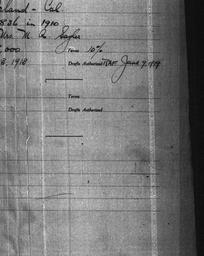 land - Cal
836 in 1910
Mrs. M. A. Saylor
,000 Terms 10%
3, 1918 Drafts Authorized June 9, 1919
Terms
Drafts Authorized